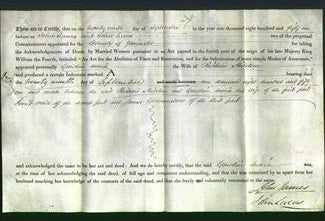 These are to Certify, that on the twenty ninth day of September in the year one thousand eight hundred and fifty one
before us John James and John Lucas two of the perpetual
Commissioners appointed for the County of for taking
the Acknowledgments of Deeds by Married Women pursuant to an Act passed in the fourth year of the reign of his late Majesty King
William the Fourth, intituled "An Act for the Abolition of Fines and Recoveries, and for the Substitution of more simple Modes of Assurance,"
appeared personally Caroline the Wife of
and produced a certain Indenture marked A bearing date
the twenty ninth day of September one thousand eight hundred and fifty
one and made between the said and Caroline his wife of the first part
of the second part and James of the third part
and acknowledged the same to be her act and deed: And we hereby certify, that the said Caroline was,
at the time of her acknowledging the said deed, of full age and competent understanding, and that she was examined by us apart from her
husband touching her knowledge of the contents of the said deed, and that she freely and voluntarily consented to the same.
John James
John Lucas